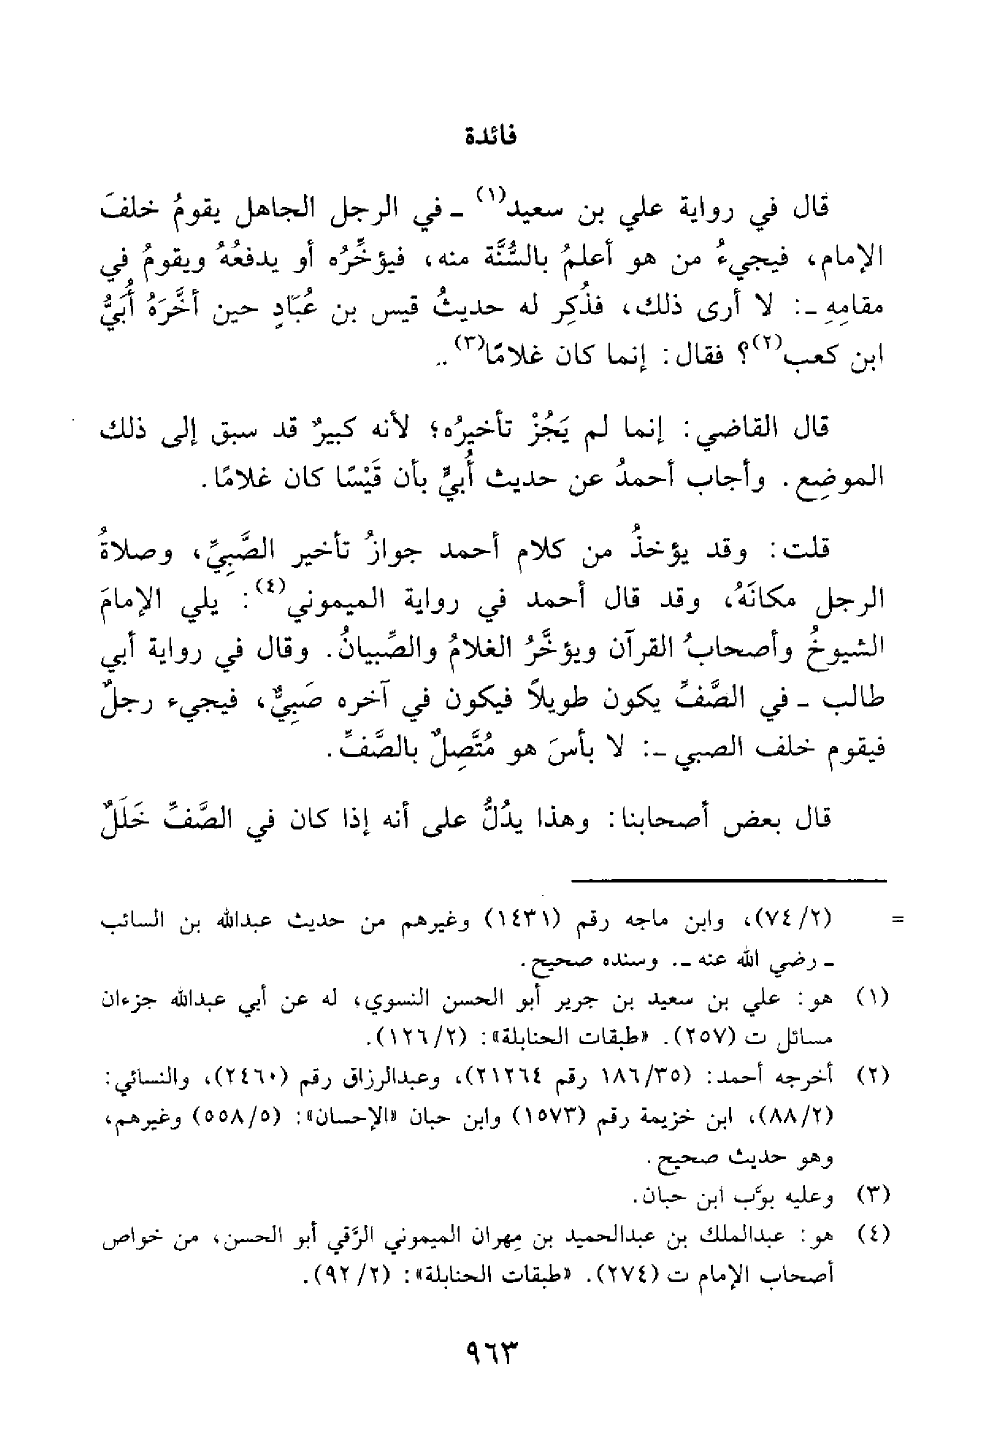 فائدة
قال في رواية علي بن سعيد(١) ـ في الرجل الجاهل يقومُ خلفَ
الإمام، فيجيءُ من هو أعلمُ بالسُّنَّة منه، فيؤخِّرُه أو يدفعُهُ ويقومُ في
مقامِهِ ـ: لا أرى ذلك، فذُكِر له حديثُ قيس بن عُبَادٍ حين أخَّرَهُ أُبَيُّ
ابن كعب(٢)؟ فقال: إنما كان غلامًا(٣) ..
قال القاضي: إنما لم يَجُزْ تأخيرُه؛ لأنه كبيرٌ قد سبق إلى ذلك
الموضِع. وأجاب أحمدُ عن حديث أُبيٍّ بأن قَيْسًا كان غلامًا.
قلت: وقد يؤخذُ من كلام أحمد جوازُ تأخير الصَّبِيِّ، وصلاةُ
الرجل مكانَهُ، وقد قال أحمد في رواية الميموني(٤): يلي الإمامَ
الشيوخُ وأصحابُ القرآن ويؤخَّرُ الغلامُ والصِّبيانُ. وقال في رواية أبي
طالب ـ في الصَّفِّ يكون طويلاً فيكون في آخره صَبِيٌّ، فيجيء رجلٌ
فيقوم خلف الصبي ـ: لا بأسَ هو مُتَّصِلٌ بالصَّفِّ.
قال بعض أصحابنا: وهذا يدُلُّ على أنه إذا كان في الصَّفِّ خَلَلٌ
= (٢/ ٧٤)، وابن ماجه رقم (١٤٣١) وغيرهم من حديث عبدالله بن السائب
ـ رضي الله عنه ـ. وسنده صحيح.
(١) هو: علي بن سعيد بن جرير أبو الحسن النسوي، له عن أبي عبدالله جزءان
مسائل ت (٢٥٧). «طبقات الحنابلة»: (٢/ ١٢٦).
(٢) أخرجه أحمد: (٣٥/ ١٨٦ رقم ٢١٢٦٤)، وعبدالرزاق رقم (٢٤٦٠)، والنسائي:
(٢/ ٨٨)، ابن خزيمة رقم (١٥٧٣) وابن حبان «الإحسان»: (٥/ ٥٥٨) وغيرهم،
وهو حديث صحيح.
(٣) وعليه بوَّب ابن حبان.
(٤) هو: عبدالملك بن عبدالحميد بن مِهران الميموني الرَّقي أبو الحسن، من خواص
أصحاب الإمام ت (٢٧٤). «طبقات الحنابلة»: (٢/ ٩٢).
٩٦٣